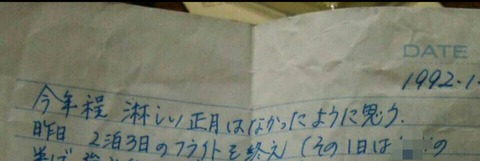 DATE
1992.1.
今年程 淋しい正月はなかったように思う.
昨日 2泊3日のフライトを終え(その1日は の